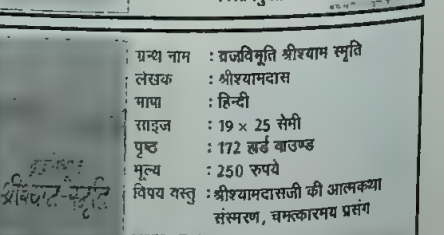 ग्रन्थ नाम : व्रजविभूति श्रीश्याम स्मृति
लेखक : श्रीश्यामदास
भाषा : हिन्दी
साइज : 19 × 25 सेमी
पृष्ठ : 172 हार्ड बाउण्ड
मूल्य : 250 रुपये
विषय वस्तु : श्रीश्यामदासजी की आत्मकथा
संस्मरण, चमत्कारमय प्रसंग